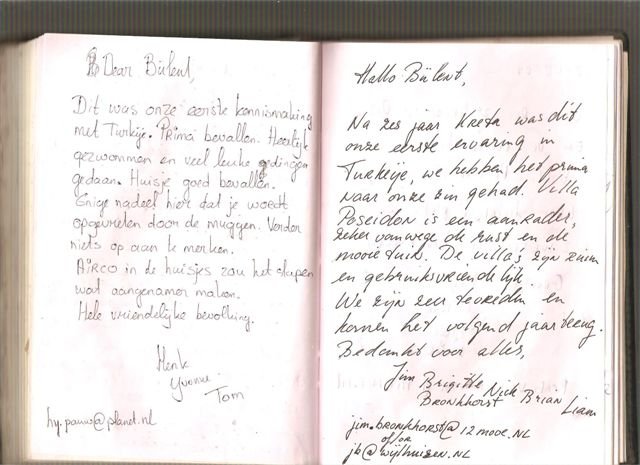 Dear Bülent,
Dit was onze eerste kennismaking
met Turkije. Prima bevallen. Heerlijk
gezwommen en veel leuke dingen
gedaan. Huisje goed bevallen.
Enige nadeel hier dat je woedt
opgevreten door de muggen. Verder
niets op aan te merken.
AIRCO in de huisjes zou het slapen
wat aangenamer maken.
Hele vriendelijke bevolking.
Henk
Yvonne
Tom
hy.pauw@planet.nl
Hallo Bülent,
Na zes jaar Kreta was dit
onze eerste ervaring in
Turkeije, we hebben het prima
naar onze zin gehad. Villa
Poseidon is een aanrader,
zeker vanwege de rust en de
mooie tuin. De villa's zijn ruim
en gebruiksvriendelijk.
We zijn zeer tevreden en
komen het volgend jaar terug.
Bedankt voor alles,
Jim Brigitte Nick Brian Liam
BRONKHORST
jim.bronkhorst@12move.NL
of/or
jb@wijthuizen.NL